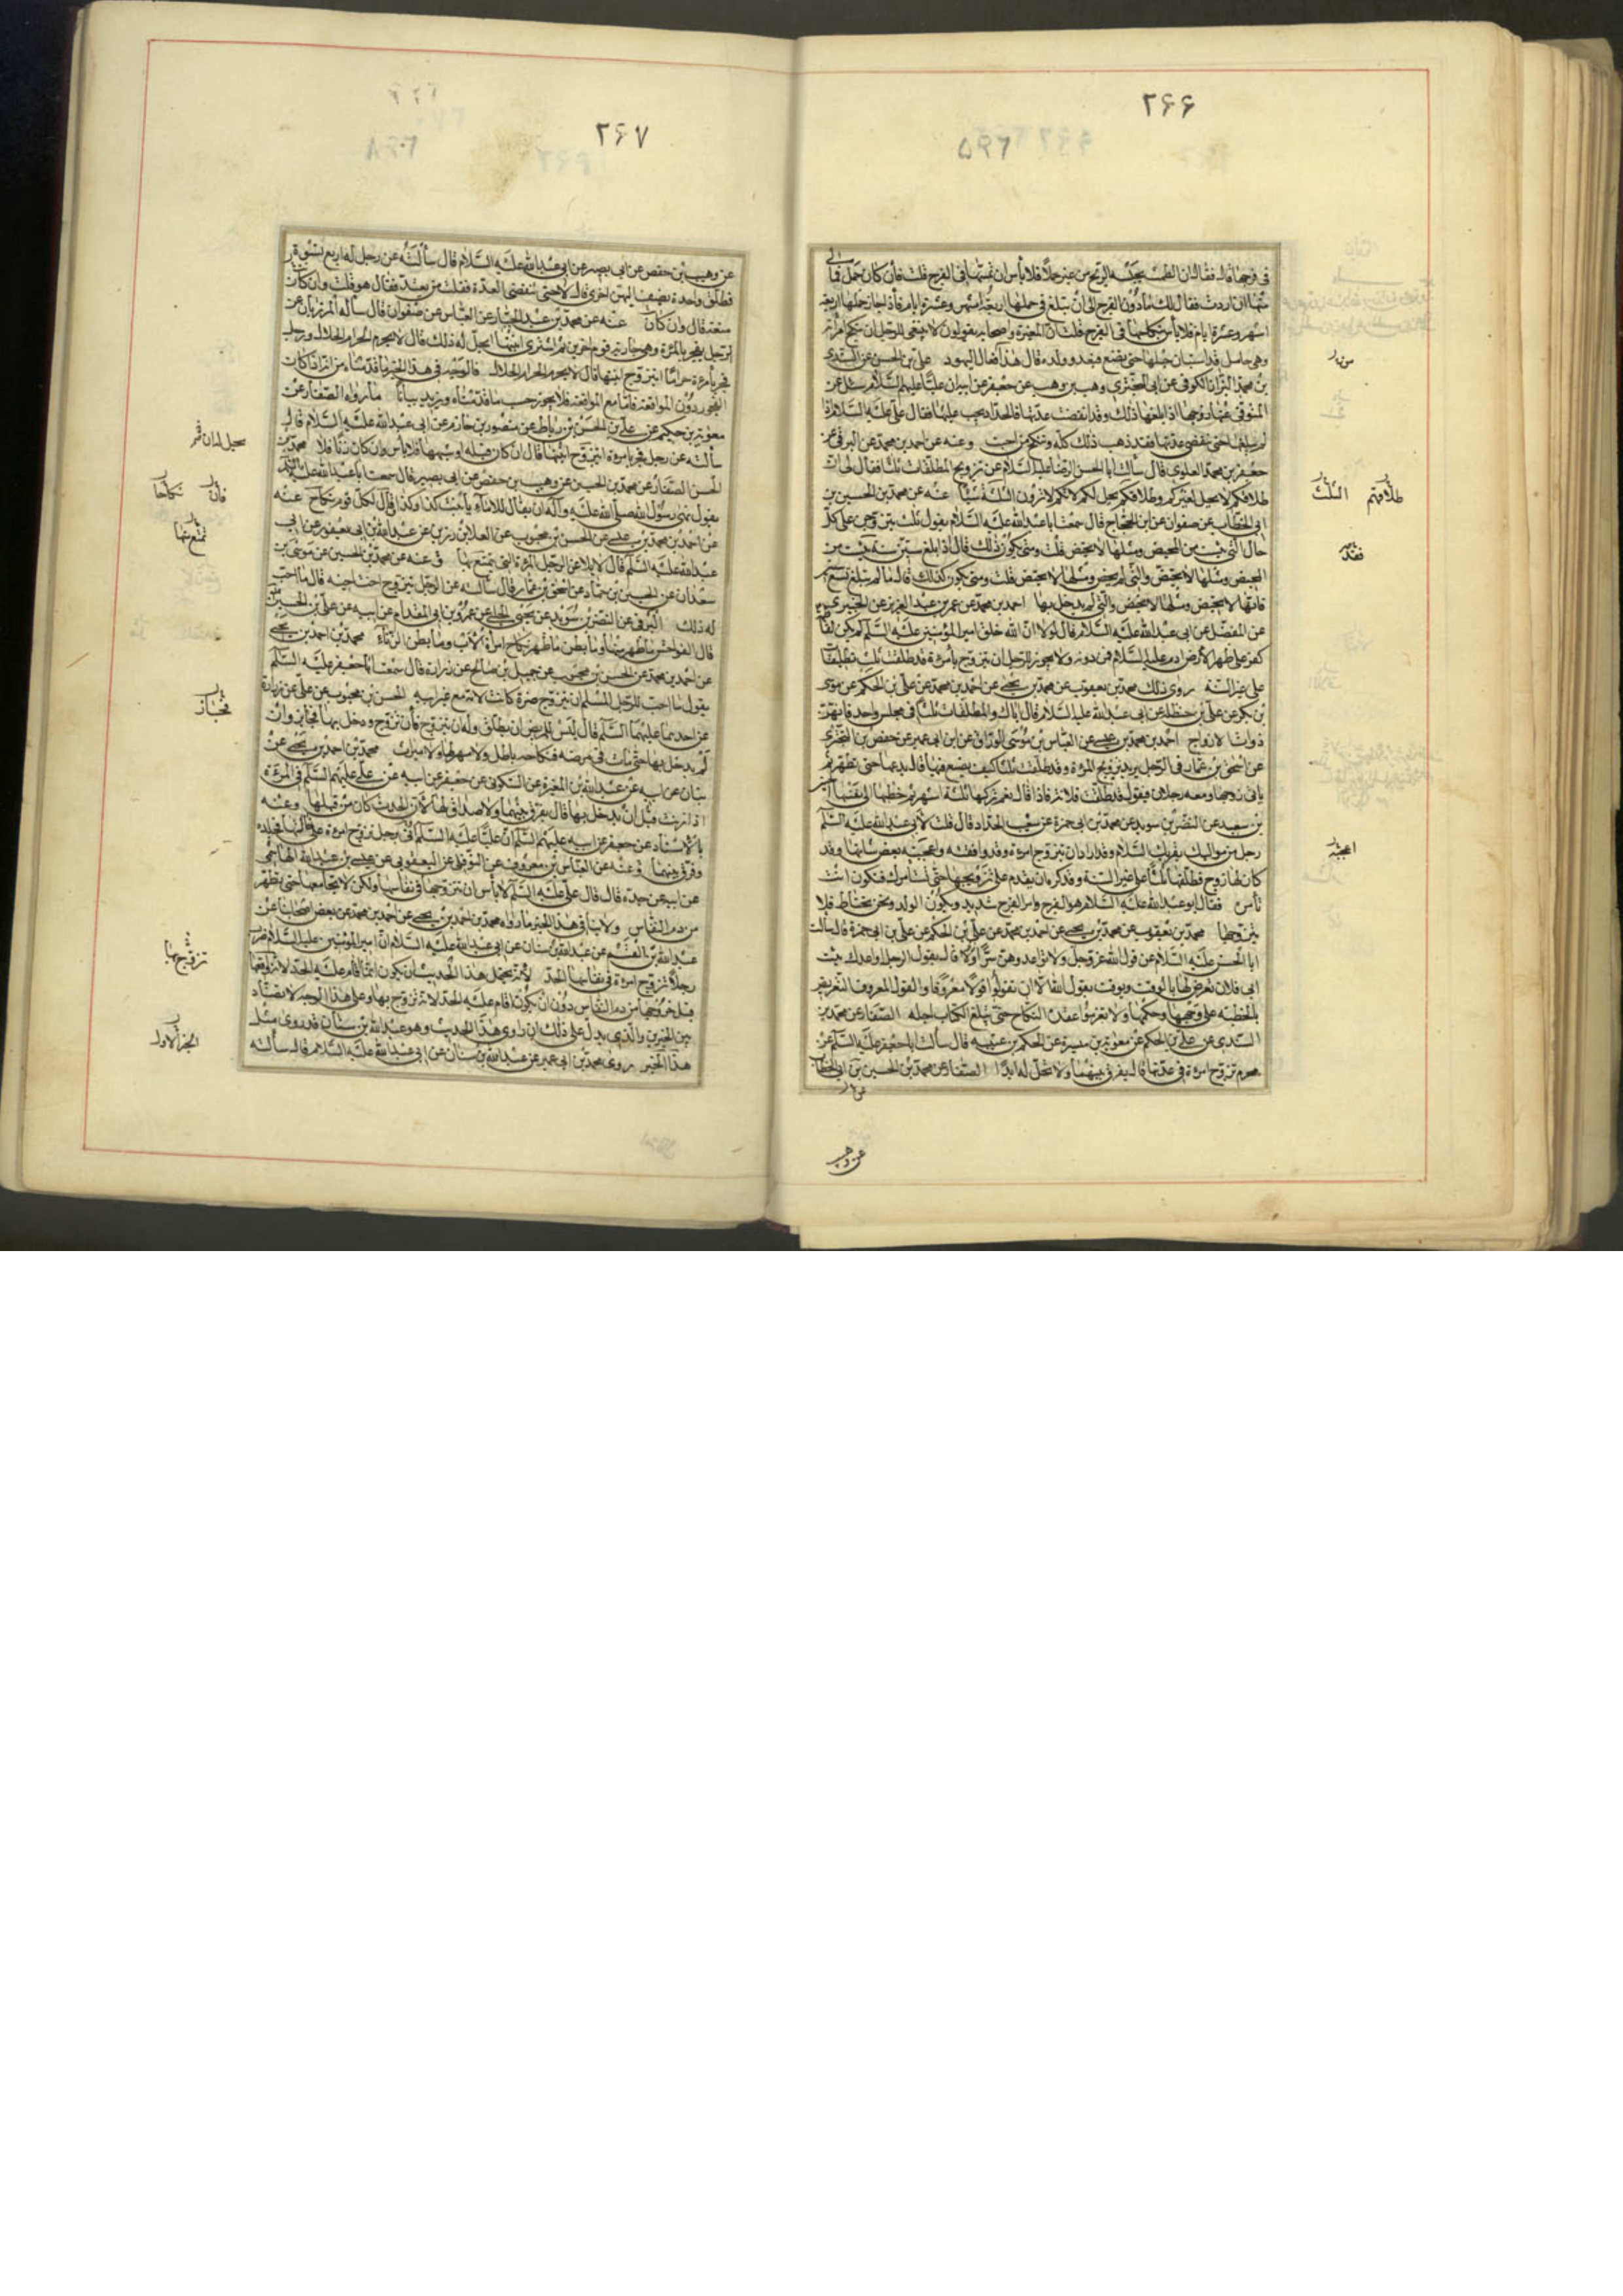 ٢۶۶
في فرجها قال فقال ان الطمث يحبسه الريح من غير حبل فلا بأس ان تمسها في الفرج قلت فان كان حمل فمالي
منها ان اردت فقال لك ما دون الفرج الى ان تبلغ في حملها اربعة اشهر وعشرة ايام فاذا جاز حملها اربعة
اشهر وعشرة ايام فلا بأس بنكاحها في الفرج قلت ان المغيرة واصحابه يقولون لا ينبغي للرجل ان ينكح امرأته
وهي حامل قد استبان حملها حتى تضع فيغذو ولده قال هذا فعال اليهود علي بن الحسن عن السندي
بن محمد البزاز الكوفي عن ابي البختري وهب بن وهب عن جعفر عن ابيه ان عليا عليهم السلام سئل عن
المتوفى عنها زوجها اذا بلغها ذلك وقد انقضت عدتها فالحداد يجب عليها فقال علي عليه السلام اذا
لم يبلغها حتى تنقضي عدتها فقد ذهب ذلك كله وتنكح من احبت وعنه عن احمد بن محمد عن البرقي عن
جعفر بن محمد العلوي قال سألت ابا الحسن الرضا عليه السلام عن تزويج المطلقات ثلثا فقال لي ان
طلاقكم لا يحل لغيركم وطلاقهم يحل لكم لانكم لا ترون الثلث شيئا عنه عن محمد بن الحسين بن
ابي الخطاب عن صفوان عن ابن الحجاج قال سمعت ابا عبد الله عليه السلام يقول ثلث يتزوجن على كل
حال التي يئست من المحيض ومثلها لا تحيض قلت ومتى تكون كذلك قال اذا بلغت ستين سنة فقد يئست من
المحيض ومثلها لا تحيض والتي لم تحض ومثلها لا تحيض قلت ومتى يكون كذلك قال ما لم تبلغ تسع سنين
فانها لا تحيض ومثلها لا تحيض والتي لم يدخل بها احمد بن محمد عن عمر بن عبد العزيز عن الخيبري
عن المفضل عن ابي عبد الله عليه السلام قال لولا ان الله خلق امير المؤمنين عليه السلم لم يكن لفاطمة
كفو على ظهر الارض ادم عليه السلام فمن دونه ولا يجوز للرجل ان يتزوج بامرءة قد طلقت ثلث تطليقات
على غير السنة روى ذلك محمد بن يعقوب عن محمد بن يحيى عن احمد بن محمد عن علي بن الحكم عن موسى
بن بكر عن علي بن حنظلة عن ابي عبد الله عليه السلام قال اياك والمطلقات ثلثا في مجلس واحد فانهن
ذوات الازواج احمد بن محمد بن عيسى عن العباس بن موسى الوراق عن ابن ابي عمير عن حفص بن البختري
عن اسحق بن عمار في الرجل يريد تزويج المرءة وقد طلقت ثلثا كيف يصنع فيها قال يدعها حتى تطهر ثم
ياتي زوجها ومعه رجلان فيقول قد طلقت فلانة فاذا قال نعم تركها ثلثة اشهر ثم خطبها الى نفسها الحسين
بن سعيد عن النضر بن سويد عن محمد بن ابي حمزة عن شعيب الحداد قال قلت لابي عبد الله عليه السلم
رجل من مواليك يقرئك السلام وقد اراد ان يتزوج امرءة وقد وافقته واعجبته بعض شانها وقد
كان لها زوج فطلقها ثلثا على غير السنة وقد كره ان يقدم على تزويجها حتى يستأمرك فتكون انت
تأمره فقال ابو عبد الله عليه السلام هو الفرج وامر الفرج شديد ويكون الولد ونحن نحتاط فلا
يتزوجها محمد بن يعقوب عن محمد بن يحيى عن احمد بن محمد عن علي بن الحكم عن علي بن ابي حمزة قال سألت
ابا الحسن عليه السلام عن قول الله عز وجل ولا تواعدوهن سرا قال يقول الرجل اواعدك بيت
ابي فلان يعرض لها بالرفث ويوقت يقول الله الا ان تقولوا قولا معروفا والقول المعروف التعريض
بالخطبة على وجهها وحكمها ولا تعزموا عقدة النكاح حتى يبلغ الكتاب اجله الصفار عن محمد بن
السندي عن علي بن الحكم عن معوية بن ميسرة عن الحكم بن عتيبة قال سألت ابا جعفر عليه السلم عن
محرم تزوج امرءة في عدتها قال يفرق بينهما ولا تحل له ابدا الصفار عن محمد بن الحسين بن ابي الخطاب
عن وهب
طلاقهم الثلث
فقد
اعجبه
٢۶٧
عن وهيب بن حفص عن ابي بصير عن ابي عبد الله عليه السلام قال سألته عن رجل له اربع نسوة
فطلق واحدة يضيف اليهن اخرى قال لا حتى تنقضي العدة فقلت من يعتد فقال هو قلت وان كان
متعة قال وان كان عنه عن محمد بن عبد الجبار عن العباس عن صفوان قال سأله المرزبان عن
الرجل يفجر بالمرءة وهي جارية قوم اخرين ثم اشترى ابنتها ايحل له ذلك قال لا يحرم الحرام الحلال ورجل
فجر بامرءة حراما ايتزوج ابنتها قال لا يحرم الحرام الحلال فالوجه في هذا الخبر ما قدمناه من انه اذا كان
الفجور دون المواقعة فاما مع المواقعة فلا يجوز حسب ما قدمناه ويزيد بيانا ما رواه الصفار عن
معوية بن حكيم عن علي بن الحسن بن رباط عن منصور بن حازم عن ابي عبد الله عليه السلام قال
سألته عن رجل فجر بامرءة ايتزوج ابنتها قال ان كان قبلة او شبهها فلا بأس وان كان زنا فلا محمد بن
الحسن الصفار عن محمد بن الحسين عن وهيب بن حفص عن ابي بصير قال سمعت ابا عبد الله عليه السلم
يقول نهى رسول الله صلى الله عليه وآله ان يقال للاماء يا بنت كذا وكذا وقال لكل قوم نكاح عنه
عن احمد بن محمد بن عيسى عن الحسن بن محبوب عن العلا بن رزين عن عبد الله بن ابي يعفور عن ابي
عبد الله عليه السلم قال لا يلاعن الرجل المرءة التي يتمتع بها وعنه عن محمد بن الحسين عن موسى بن
سعدان عن الحسين بن حماد عن اسحق بن عمار قال سألته عن الرجل يتزوج اخت اخيه قال ما احب
له ذلك البرقي عن النضر بن سويد عن يحيى الحلبي عن عمرو بن ابي المقدام عن ابيه عن علي بن الحسين
قال الفواحش ما ظهر منها وما بطن ما ظهر نكاح امرأة الاب وما بطن الزناء محمد بن احمد بن يحيى
عن احمد بن محمد عن الحسن بن محبوب عن جميل بن صالح عن زرارة قال سمعت ابا جعفر عليه السلم
يقول ما احب للرجل المسلم ان يتزوج ضرة كانت لامه مع غير ابيه الحسن بن محبوب عن علي عن زرارة
عن احدهما عليهما السلم قال ليس للمريض ان يطلق وله ان يتزوج فان تزوج ودخل بها فجائز وان
لم يدخل بها حتى مات في مرضه فنكاحه باطل ولا مهر لها ولا ميراث محمد بن احمد بن يحيى عن
بنان عن ابيه عن عبد الله بن المغيرة عن السكوني عن جعفر عن ابيه عن علي عليهم السلم في المرءة
اذا زنت قبل ان يدخل بها قال يفرق بينهما ولا صداق لها لان الحدث كان من قبلها وعنه
بالاسناد عن جعفر عن ابيه عليهم السلم ان عليا عليه السلم اتي رجل تزوج امرءة على خالتها فجلده
وفرق بينهما وعنه عن العباس بن معروف عن النوفلي عن اليعقوبي عن عيسى بن عبد الله الهاشمي
عن ابيه عن جده قال قال علي عليه السلم لا بأس ان يتزوجها في نفاسها ولكن لا يجامعها حتى تطهر
من دم النفاس ولا ينافي هذا الخبر ما رواه محمد بن احمد بن يحيى عن احمد بن محمد عن بعض اصحابنا عن
عبد الله بن القسم عن عبد الله بن سنان عن ابي عبد الله عليه السلام ان امير المؤمنين عليه السلام ضرب
رجلا تزوج امرءة في نفاسها الحد لانه يحتمل هذا الحديث ان يكون انما اقام عليه الحد لانه واقعها
قبل خروجها من دم النفاس دون ان يكون اقام عليه الحد لانه تزوج بها وعلى هذا الوجه لا تضاد
بين الخبرين والذي يدل على ذلك ان راوي هذا الحديث وهو عبد الله بن سنان قد روى مثل
هذا الخبر روى محمد بن ابي عمير عن عبد الله بن سنان عن ابي عبد الله عليه السلام قال سألته
فان نكاحا
تمتع بها
فجاز
تزويجها
الخبر الاول